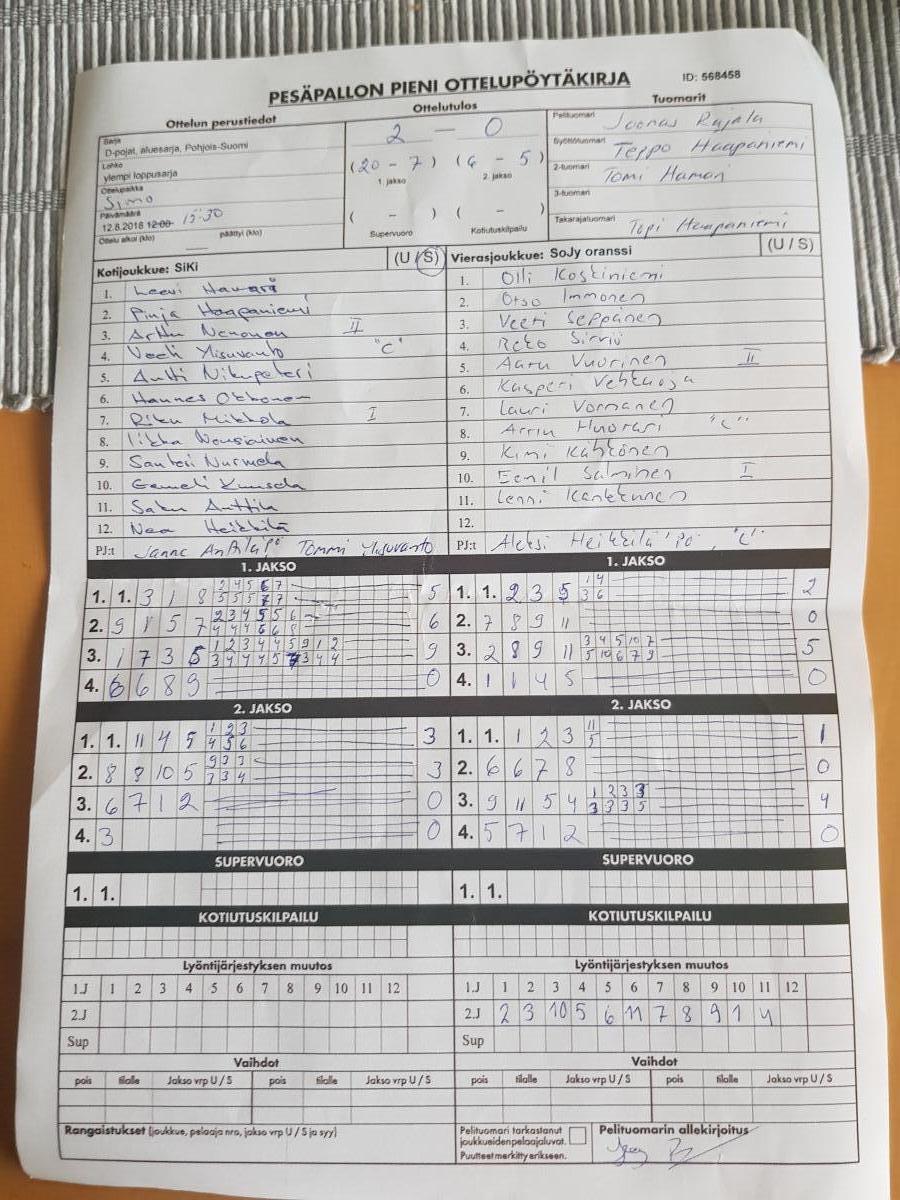 PESÄPALLON PIENI OTTELUPÖYTÄKIRJA
ID: 568458
Ottelun perustiedot
Sarja
D-pojat, aluesarja, Pohjois-Suomi
Lohko
ylempi loppusarja
Ottelupaikka
Simo
Päivämäärä
12.8.2018 12:00 15:30
Ottelu alkoi (klo) päättyi (klo)
Ottelutulos
2 – 0
(20 – 7) (6 – 5)
1. jakso 2. jakso
( – ) ( – )
Supervuoro Kotiutuskilpailu
Tuomarit
Pelituomari Joonas Rajala
Syöttötuomari Teppo Haapaniemi
2-tuomari Tomi Haman
3-tuomari
Takarajatuomari Topi Haapaniemi
Kotijoukkue: SiKi (U / S)
1. Leevi
2. Pinja Haapaniemi
3. Arttu Nenonen II
4. Veeti Ylisuvanto "C"
5. Antti Nikupeteri
6. Hannes Okkonen
7. Riku Mikkola I
8. Iikka Nousiainen
9. Santeri Nurmela
10. Eemeli
11. Saku Anttila
12. Nea Heikkilä
PJ:t Janne Anttila "PJ" Tommi Ylisuvanto
Vierasjoukkue: SoJy oranssi (U / S)
1. Olli Koskiniemi
2. Otso Immonen
3. Veeti Seppänen
4. Sirviö
5. Aaru Vuorinen II
6. Kasperi
7. Lauri Vornanen
8. "C"
9. Kimi Kähkönen
10. Eemil Salminen I
11. Lenni
12.
PJ:t Aleksi Heikkilä "PJ", "C"
1. JAKSO
1. 1. 3 1 8
2 4 5 6 7
5 5 5 7 7
5
2. 9 1 5 7
2 3 4 5 5 6
4 4 4 6 6 8
6
3. 1 7 3 5
1 2 3 4 4 5 9 1 2
3 4 4 4 5 7 3 4 4
9
4. 6 6 8 9 0
1. JAKSO
1. 1. 2 3 5
1 4
3 6
2
2. 7 8 9 11 0
3. 2 8 9 11
3 4 5 10 7
5 10 6 7 9
5
4. 1 1 4 5 0
2. JAKSO
1. 1. 11 4 5
1 2 3
4 5 6
3
2. 8 9 10 5
9 3 3
3 3 4
3
3. 6 7 1 2 0
4. 3 0
2. JAKSO
1. 1. 1 2 3
11
5
1
2. 6 6 7 8 0
3. 9 11 5 4
1 2 3 3
3 3 3 5
4
4. 5 7 1 2 0
SUPERVUORO
1. 1.
SUPERVUORO
1. 1.
KOTIUTUSKILPAILU
KOTIUTUSKILPAILU
Lyöntijärjestyksen muutos
1.J 1 2 3 4 5 6 7 8 9 10 11 12
2.J
Sup
Lyöntijärjestyksen muutos
1.J 1 2 3 4 5 6 7 8 9 10 11 12
2.J 2 3 10 5 6 11 7 8 9 1 4
Sup
Vaihdot
pois tilalle Jakso vrp U / S pois tilalle Jakso vrp U / S
Vaihdot
pois tilalle Jakso vrp U / S pois tilalle Jakso vrp U / S
Rangaistukset (joukkue, pelaaja nro, jakso vrp U / S ja syy)
Pelituomari tarkastanut
joukkueiden pelaajaluvat.
Puutteet merkitty erikseen.
Pelituomarin allekirjoitus